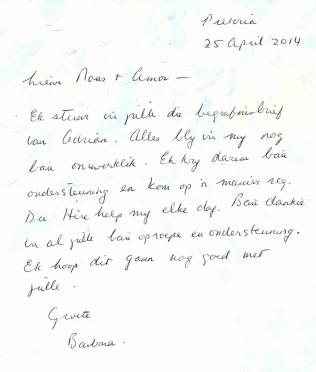 Pretoria
25 April 2014
Liewe Maas + Amor –
Ek stuur vir julle die begrafnisbrief
van Adrian. Alles bly vir my nog
baie onwerklik. Ek kry darem baie
ondersteuning en kom op 'n manier reg.
Die Here help my elke dag. Baie dankie
vir al julle baie oproepe en ondersteuning.
Ek hoop dit gaan nog goed met
julle.
Groete
Barbara.